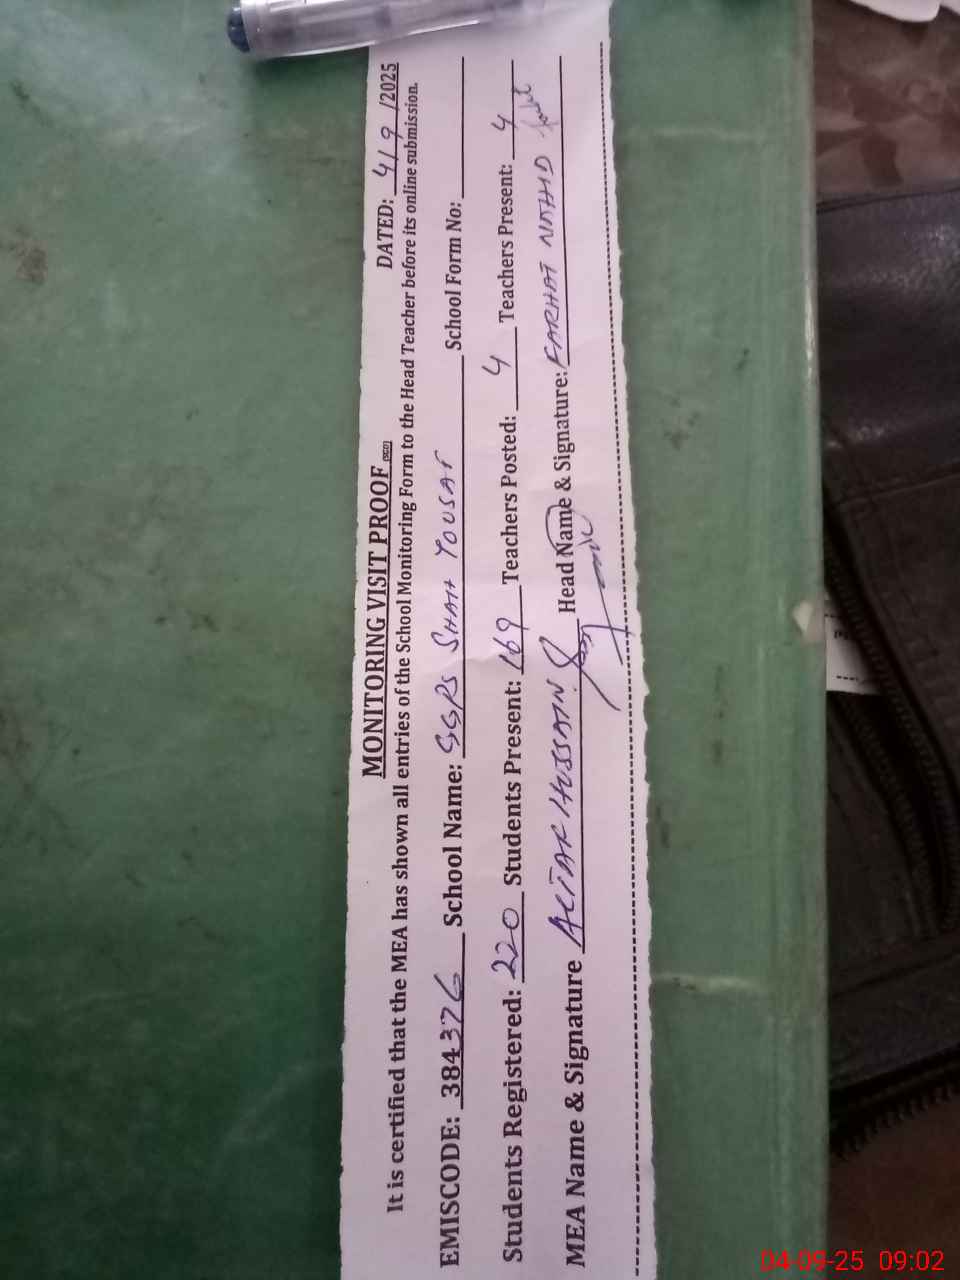 MONITORING VISIT PROOF (SED)
DATED: 4/9/2025
It is certified that the MEA has shown all entries of the School Monitoring Form to the Head Teacher before its online submission.
EMISCODE: 384376 School Name: GGPS SHAH YOUSAF School Form No:
Students Registered: 220 Students Present: 169 Teachers Posted: 4 Teachers Present: 4
MEA Name & Signature HUSSAIN Head Name & Signature: FARHAT NAHID
04-09-25 09:02